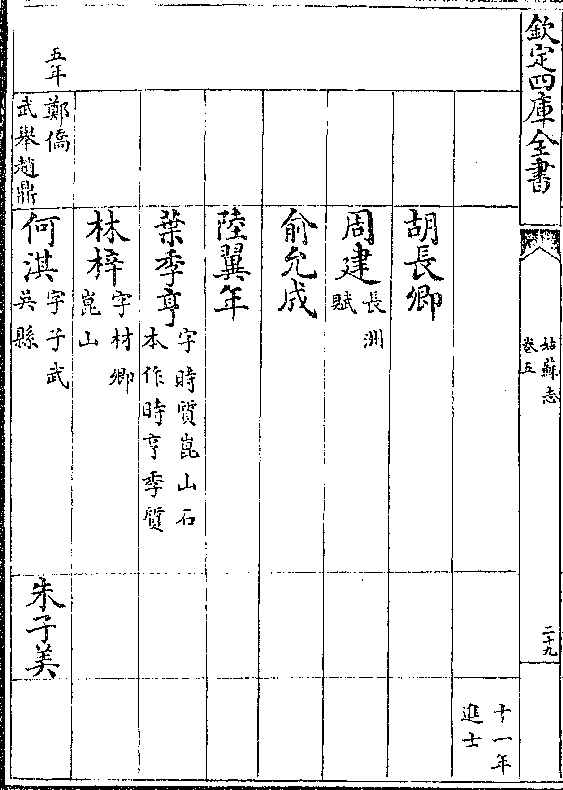 欽定四庫全書
姑蘇志
卷五
二十九
十一年
進士
胡長卿
周建 長洲
賦
俞允成
陸翼年
葉季亨 字時質崑山石
本作時亨季質
林梓 字材卿
崑山
五年
鄭僑
武舉趙鼎
何淇 字子武
吳縣
朱子美